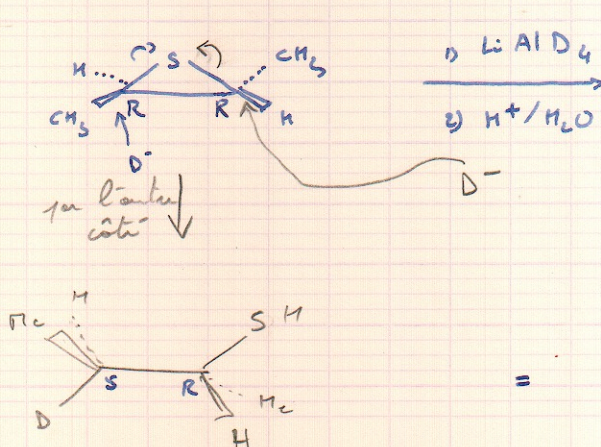 S
H CH3
CH3 R R H
D-
D-
1) LiAlD4
2) H+/H2O
par l'autre
côté
H
Me S H
S R
D Me
H
=